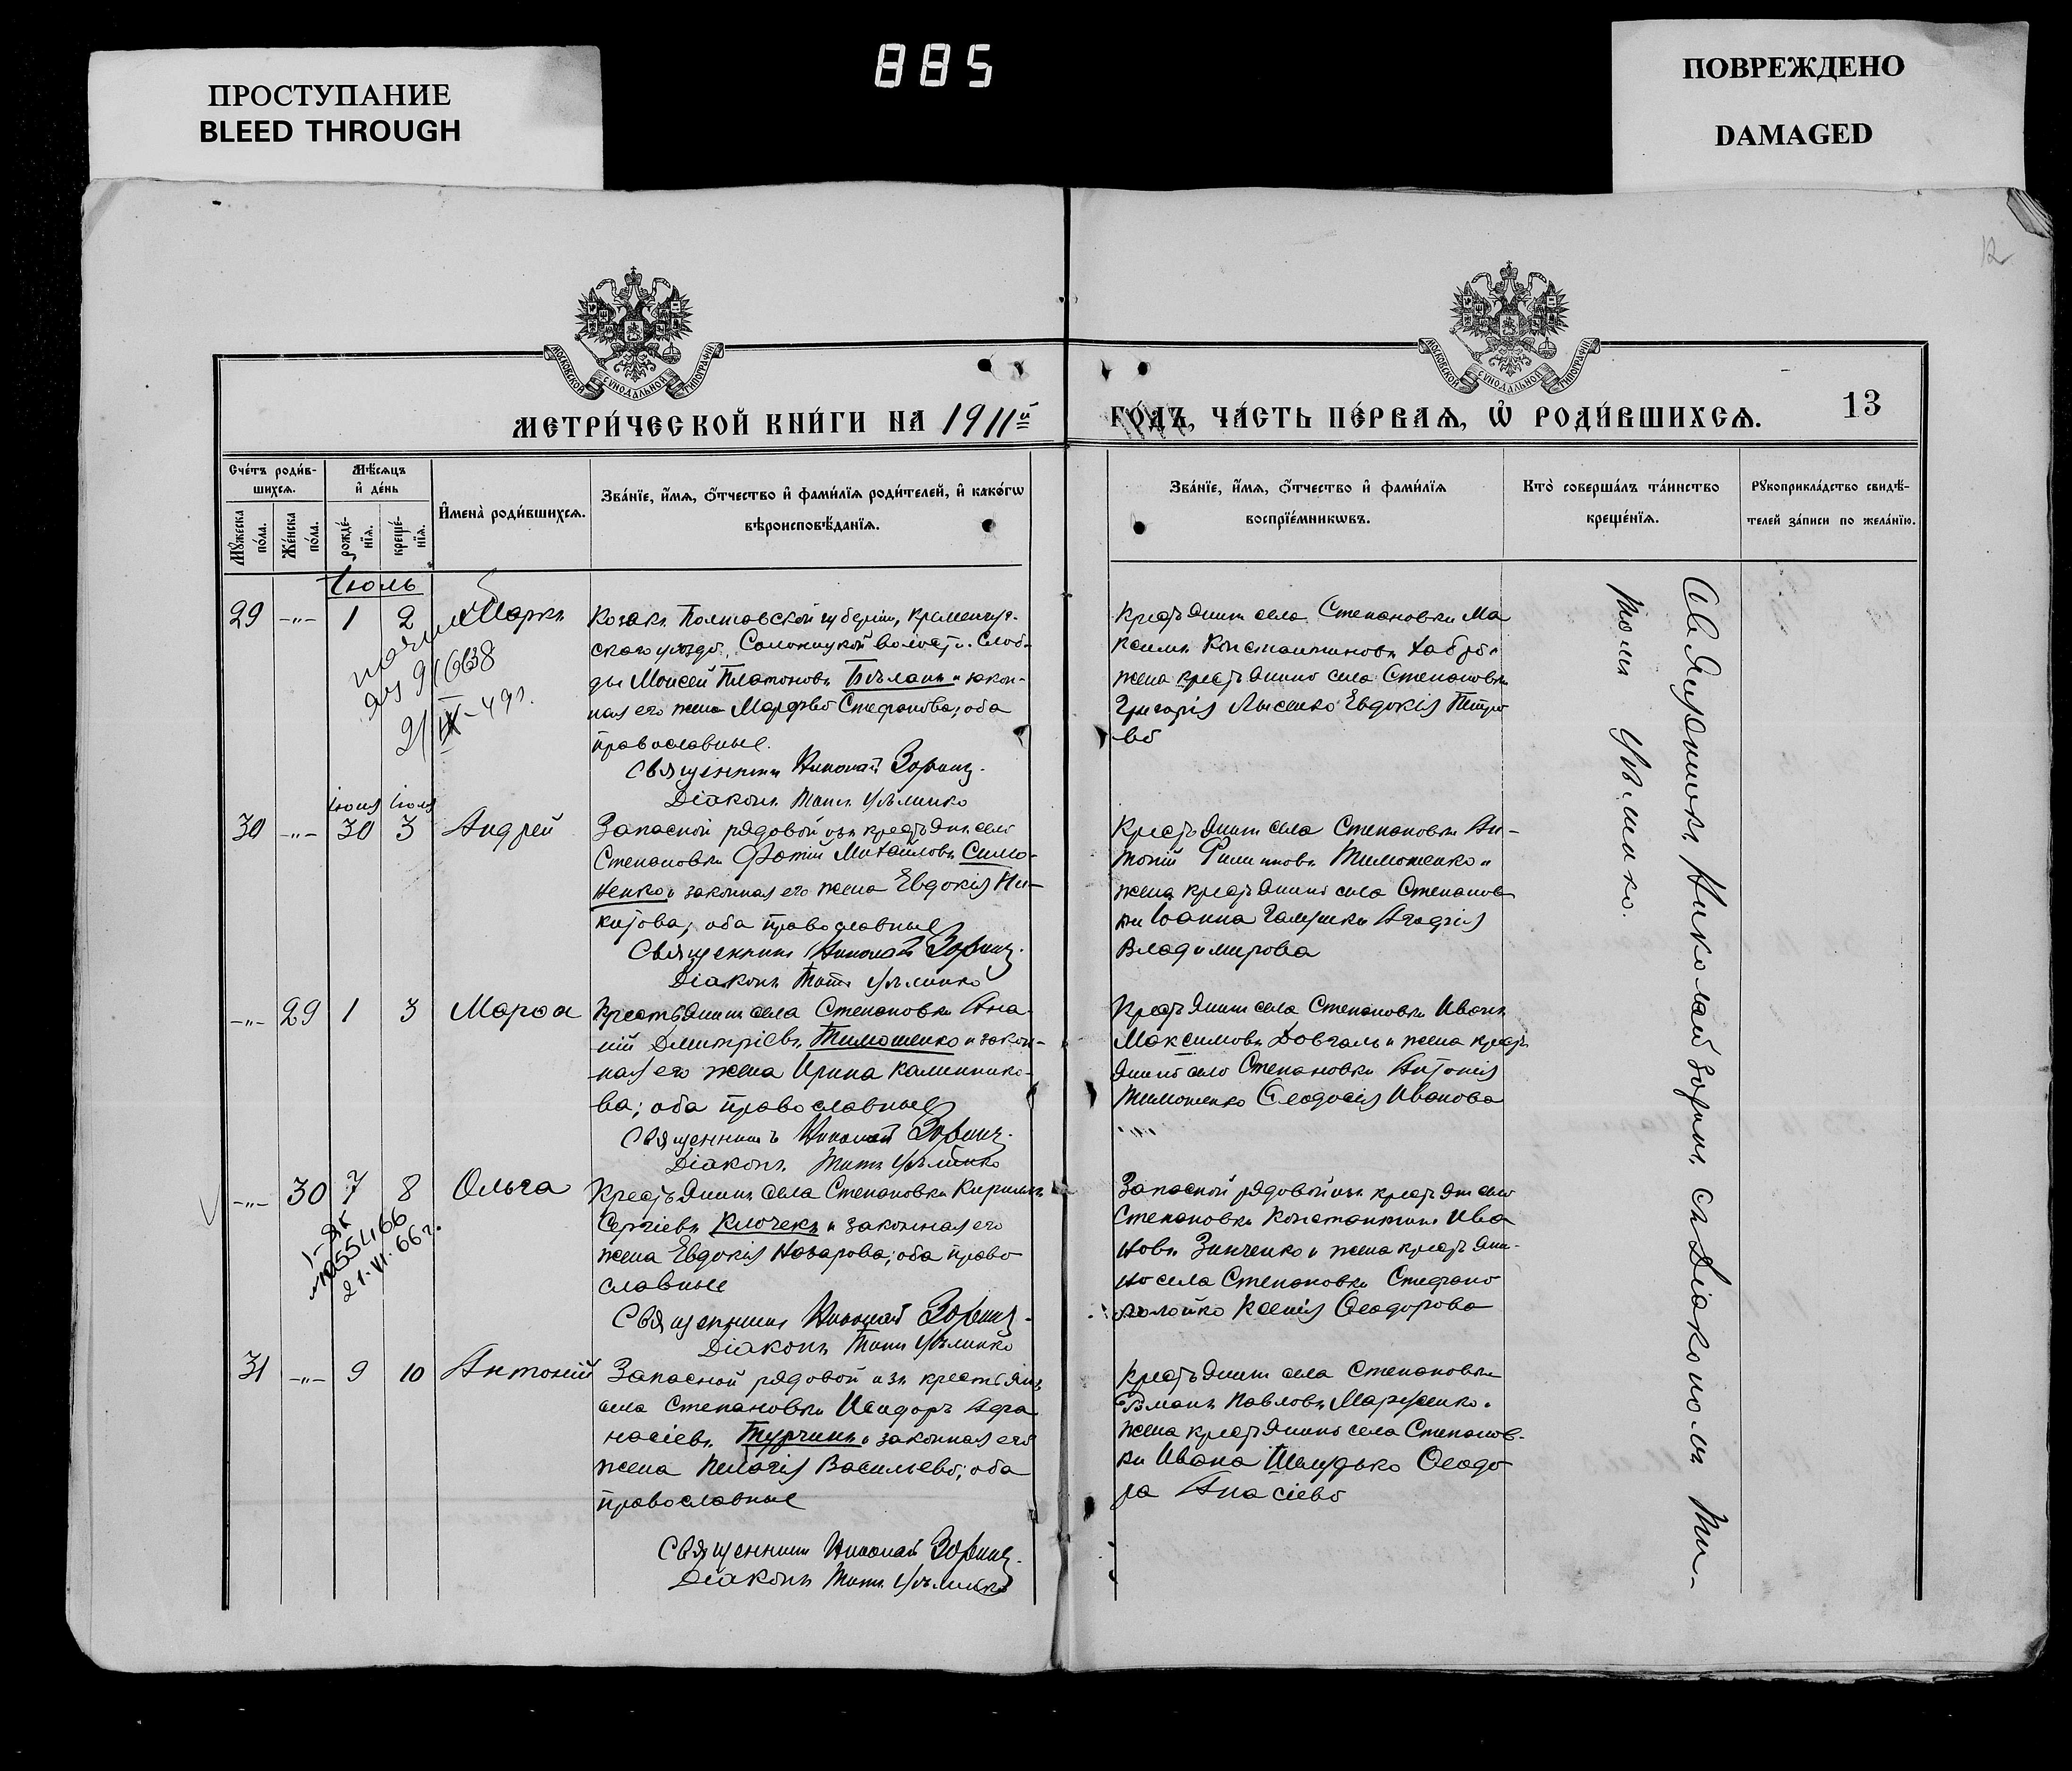 ПРОСТУПАНИЕ
BLEED THROUGH
885
ПОВРЕЖДЕНО
DAMAGED
12
МОСКОВСКОЙ СѴНОДАЛЬНОЙ ТИПОГРАФІИ
МОСКОВСКОЙ СѴНОДАЛЬНОЙ ТИПОГРАФІИ
МЕТРИ́ЧЕСКОЙ КНИ́ГИ НА 1911й
ГО́ДЪ, ЧА́СТЬ ПЕ́РВАѦ, Ѡ҆ РОДИ́ВШИХСѦ.
13
Сче́тъ роди́в-
шихсѧ.
Мꙋ́жеска
по́ла.
Же́нска
по́ла.
Мѣ́сѧцъ
и҆ де́нь
рожде́-
нїѧ.
креще́-
нїѧ.
И҆мена̀ роди́вшихсѧ.
Зва́нїе, и҆́мѧ, ѻ҆́тчество и҆ фами́лїѧ роди́телей, и҆ како́гѡ
вѣроисповѣ́данїѧ.
Зва́нїе, и҆́мѧ, ѻ҆́тчество и҆ фами́лїѧ
воспрїе́мникѡвъ.
Кто̀ соверша́лъ та́инство
креще́нїѧ.
Рꙋкоприкла́дство свидѣ́-
телей за́писи по жела́нїю.
Іюль
29 -"- 1 2 Маркъ
Козакъ Полтавской губерніи, Кременчуг-
скаго уѣзда, Солоницкой волости, Слобо-
ды Моисей Платоновъ Бѣланъ и закон-
ная его жена Марфа Стефанова; оба
православные.
Священникъ Николай Зоринъ.
Діаконъ Титъ Уѣлинко
Крестьянинъ села Степановки Ма
ксимъ Константиновъ
жена крестьянина села Степановки
Григорія Лысенко Евдокія Петро
ва
91638
21/IX-49г.
Іюня Іюля
30 -"- 30 3 Андрей
Запасной рядовой изъ крестьянъ села
Степановки Фотій Михайловъ Симо-
ненко и законная его жена Евдокія Ни-
китова; оба православные
Священникъ Николай Зоринъ.
Діаконъ Титъ Уѣлинко
Крестьянинъ села Степановки Ан-
тоній Филиповъ Тимошенко и
жена крестьянина села Степанов
ки Іоанна Галушки Агафія
Владимирова
-"- 29 1 3 Марѳа
Крестьянинъ села Степановки Ана-
ній Дмитріевъ Тимошенко и закон-
ная его жена Ирина Каллинико-
ва; оба православные
Священникъ Николай Зоринъ.
Діаконъ Титъ Уѣлинко
Крестьянинъ села Степановки Иванъ
Максимовъ Довгаль и жена кресть
янина села Степановки Антонія
Тимошенко Ѳеодосія Иванова
-"- 30 7 8 Ольга
Крестьянинъ села Степановки Кириллъ
Сергіевъ Клочекъ и законная его
жена Евдокія Назарова; оба право
славные
Священникъ Николай Зоринъ.
Діаконъ Титъ Уѣлинко
Запасной рядовой изъ крестьянъ села
Степановки Константинъ Ива
новъ Зинченко и жена крестьяни-
на села Степановки Стефана
Ксенія Ѳеодорова
I-ЯК
№554166
21.VI.66г.
31 -"- 9 10 Антоній
Запасной рядовой изъ крестьянъ
села Степановки Исидоръ Афа
насіевъ Турчинъ и законная его
жена Пелагія Васильева; оба
православные
Священникъ Николай Зоринъ.
Діаконъ Титъ Уѣлинко
Крестьянинъ села Степановки
Романъ Павловъ Марченко и
жена крестьянина села Степанов-
ки Ивана Шелудько Ѳеодо
ра
Священникъ Николай Зоринъ съ Діакономъ Ти-
томъ Уѣлинко.